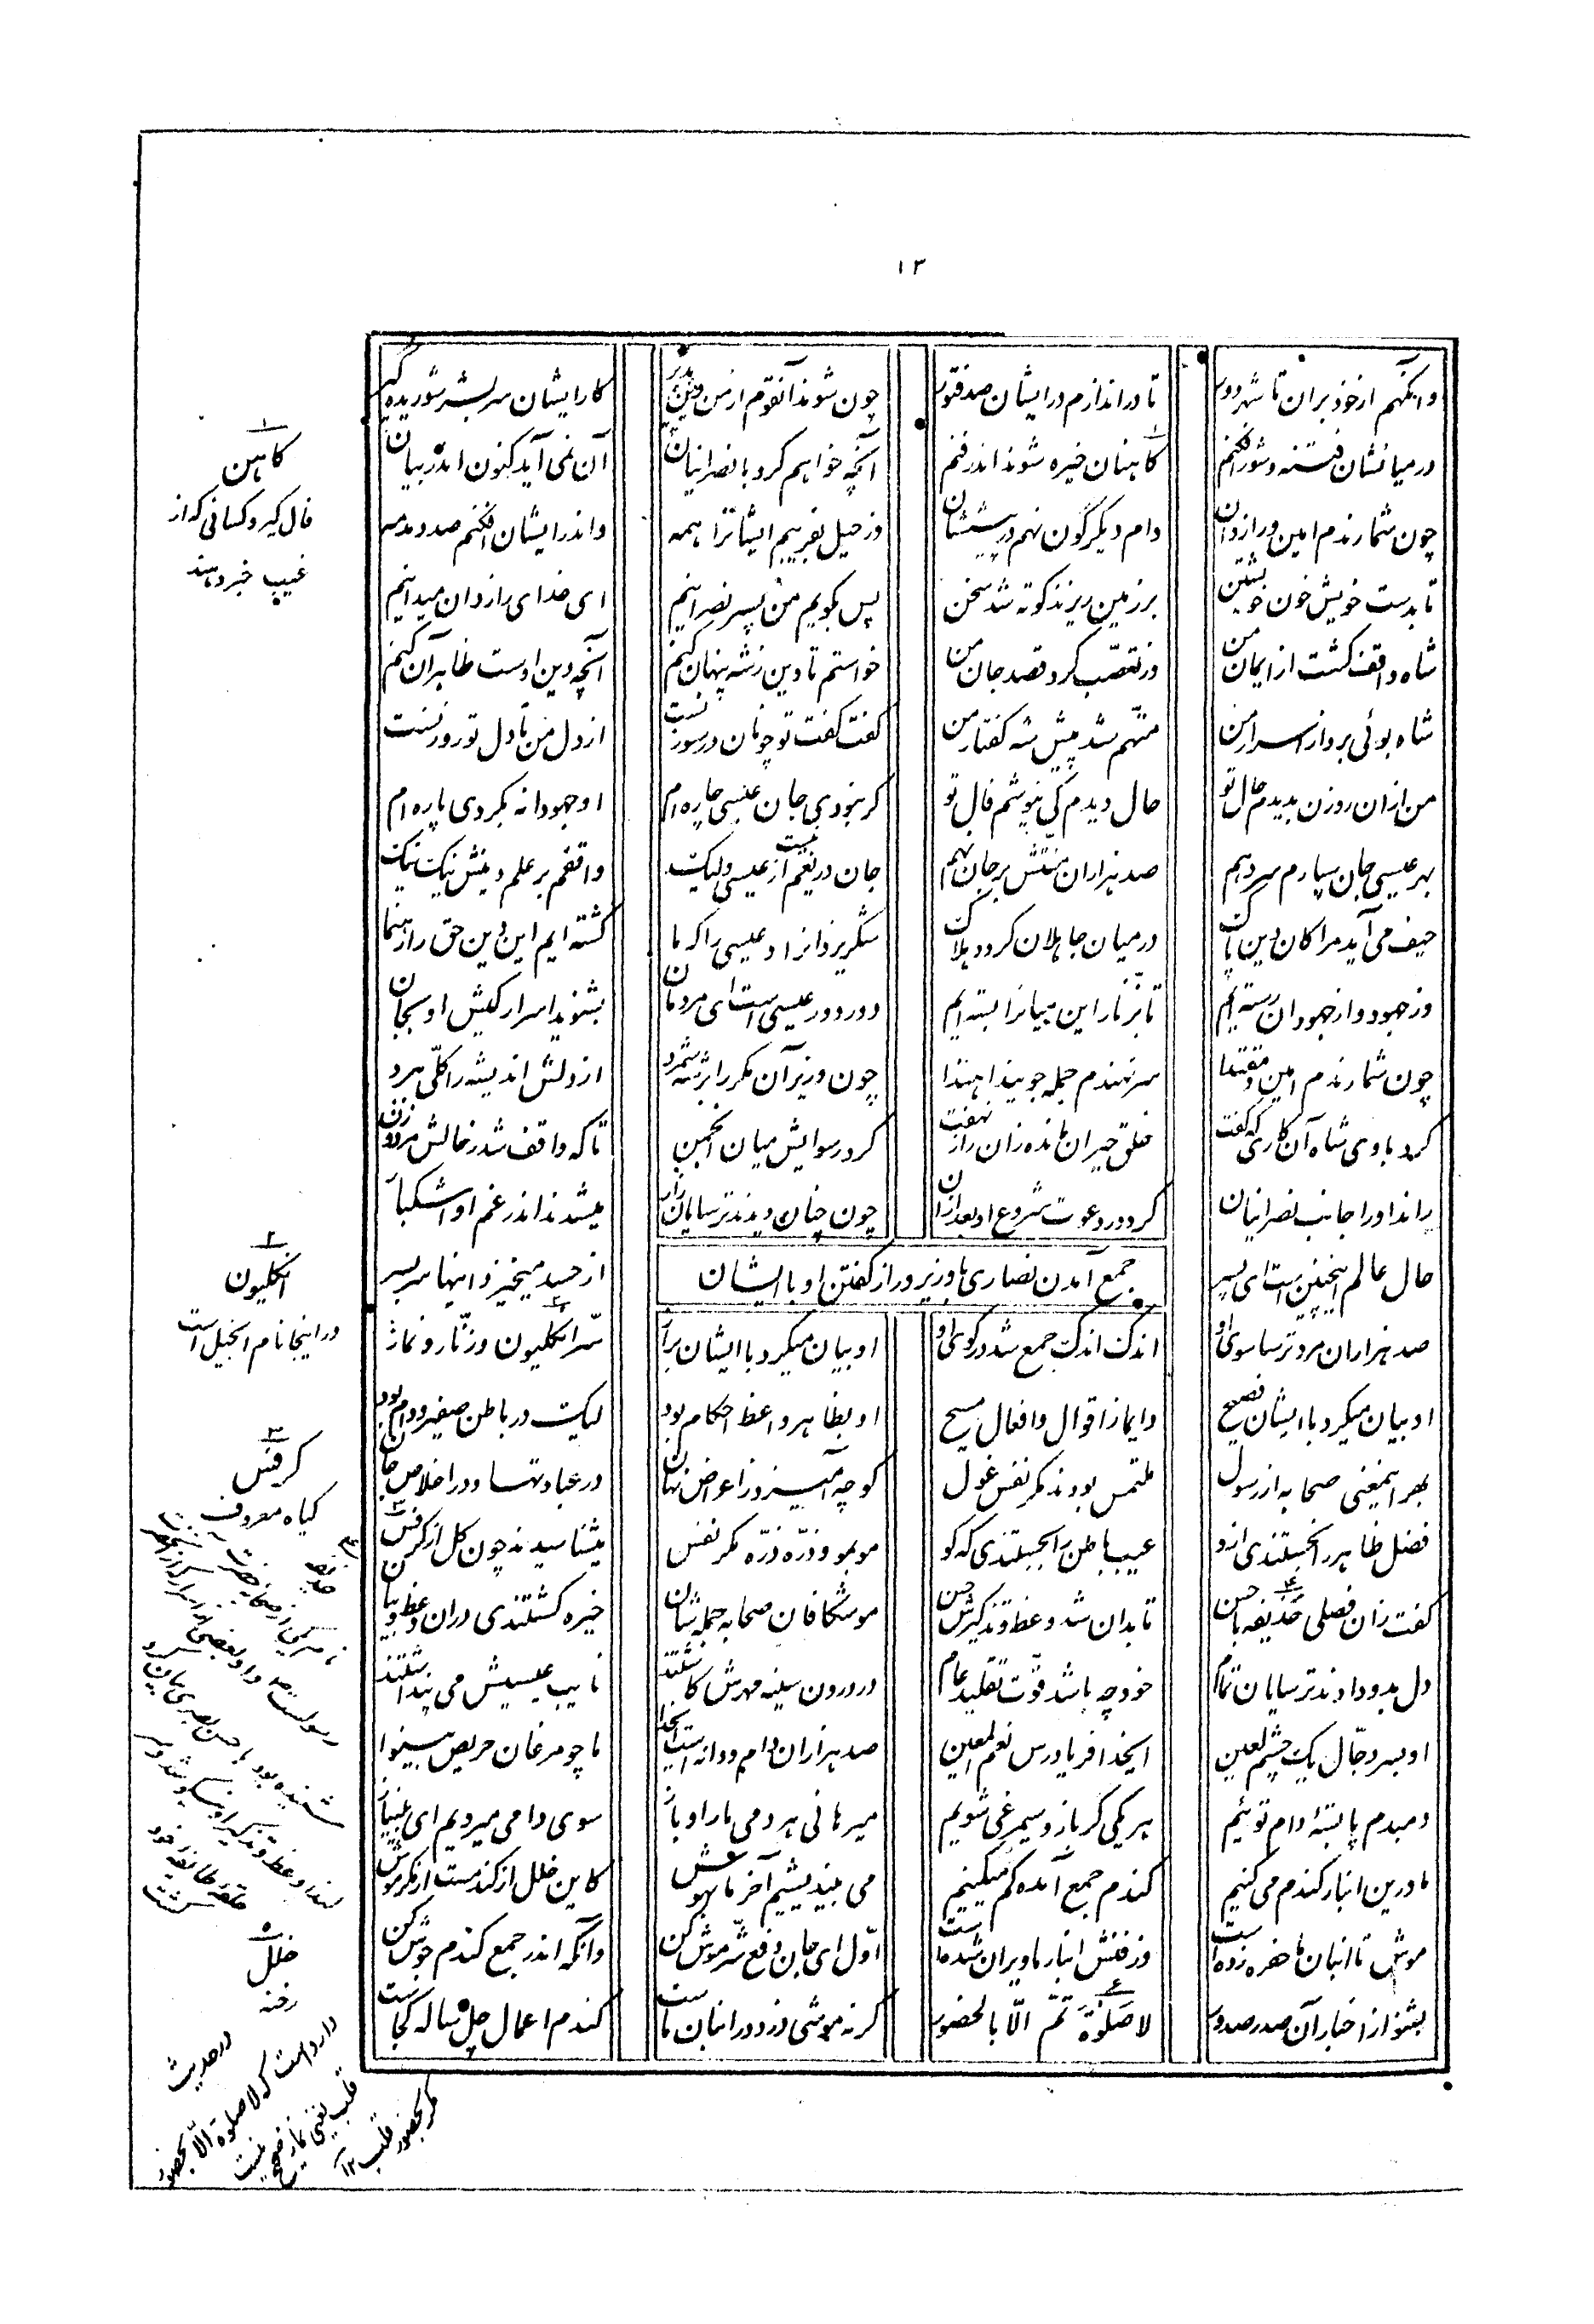 ۱۳
وانگهم از خود بران تا شهر دور | تا در اندازم در ایشان صد فتور | چون شوند آنقوم از من دین پذیر | کار ایشان سر بسر شوریده گیر
در میانشان فتنه و شور افکنم | کاهنان خیره شوند اندر فنم | آنچه خواهم کرد با نصرانیان | آن نمی آید کنون اندر بیان
چون شمارندم امین و رازدان | دام دیگر گون نهم در پیششان | وز حیل بفریبم ایشانرا همه | واندر ایشان افکنم صد دمدمه
تا بدست خویش خون خویشتن | بر زمین ریزند کوته شد سخن | پس بگویم من بسر نصرانیم | ای خدای رازدان میدانیم
شاه واقف گشت از ایمان من | وز تعصّب کرد قصد جان من | خواستم تا دین ز شه پنهان کنم | آنچه دین اوست ظاهر آن کنم
شاه بوئی برد از اسرار من | متّهم شد پیش شه گفتار من | گفت گفت تو چو نان در سوزنست | از دل من تا دل تو روزنست
من ازان روزن بدیدم حال تو | حال دیدم کی نیوشم قال تو | گر نبودی جان عیسی چاره ام | او جهودانه بکردی پاره ام
بهر عیسی جان سپارم سر دهم | صد هزاران منّتش بر جان نهم | جان دریغم نیست از عیسی ولیک | واقفم بر علم دینش نیک نیک
حیف می آید مرا کان دین پاک | در میان جاهلان گردد هلاک | شکر یزدانرا و عیسی را که ما | گشته ایم این دین حق را رهنما
وز جهود و از جهودان رسته ایم | تا بزنّار این میانرا بسته ایم | دور دور عیسی است ای مردمان | بشنوید اسرار کیش او بجان
چون شمارندم امین و مقتدا | سر نهندم جمله جویند اهتدا | چون وزیر آن مکر را بر شه شمرد | از دلش اندیشه را کلّی ببرد
کرد با وی شاه آن کاری که گفت | خلق حیران مانده زان راز نهفت | کرد رسوایش میان انجمن | تا که واقف شد ز حالش مرد و زن
راند او را جانب نصرانیان | کرد در دعوت شروع او بعد ازان | چون چنان دیدند ترسایان زار | میشدند اندر غم او اشکبار
حال عالم اینچنین است ای پسر | از حسد میخیزد اینها سر بسر
جمع آمدن نصاری با وزیر و راز گفتن او با ایشان
صد هزاران مرد ترسا سوی او | اندک اندک جمع شد در کوی او | او بیان میکرد با ایشان براز | سرّ انگلیون و زنّار و نماز
او بیان میکرد با ایشان فصیح | دایما ز اقوال و افعال مسیح | او بظاهر واعظ احکام بود | لیک در باطن صفیر و دام بود
بهر اینمعنی صحابه از رسول | ملتمس بودند مکر نفس غول | کو چه آمیزد ز اغراض نهان | در عبادتها و در اخلاص جان
فضل ظاهر را نجستندی ازو | عیب باطن را بجستندی که کو | مو بمو و ذرّه ذرّه مکر نفس | میشناسیدند چون گل از کرفس
گفت زان فصلی حذیفه با حسن | تا بدان شد وعظ و تذکیرش حسن | موشکافان صحابه جمله شان | خیره گشتندی دران وعظ و بیان
دل بدو دادند ترسایان تمام | خود چه باشد قوّت تقلید عام | در درون سینه مهرش کاشتند | نایب عیسیش می پنداشتند
او بسر دجّال یک چشم لعین | ایخدا فریاد رس نعم المعین | صد هزاران دام و دانه است ایخدا | ما چو مرغان حریص بینوا
دمبدم پا بستهٔ دام توئیم | هر یکی گر باز و سیمرغی شویم | میرهانی هر دمی ما را و باز | سوی دامی میرویم ای بینیاز
ما درین انبار گندم می کنیم | گندم جمع آمده گم میکنیم | می نیندیشیم آخر ما بهوش | کاین خلل از گندمست از مکر موش
موش تا انبان ما حفره زده است | وز فنش انبار ما ویران شده است | اوّل ای جان دفع شرّ موش کن | وانگه اندر جمع گندم جوش کن
بشنو از اخبار آن صدر صدور | لا صلوة تمّ الّا بالحضور | گر نه موشی دزد در انبان ماست | گندم اعمال چل ساله کجاست
۱
کاهن
فال گیر و کسانی که از
غیب خبر دهند
۲
انگلیون
در اینجا نام انجیل است
۳
کرفس
گیاه معروف
۴
حذیفه
۵
خلل
رخنه
در حدیث
وارد است که لا صلوة الّا بحضور
قلب یعنی نماز صحیح نیست
مگر بحضور قلب ۱۲